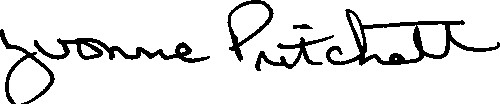 Yvonne Pritchett